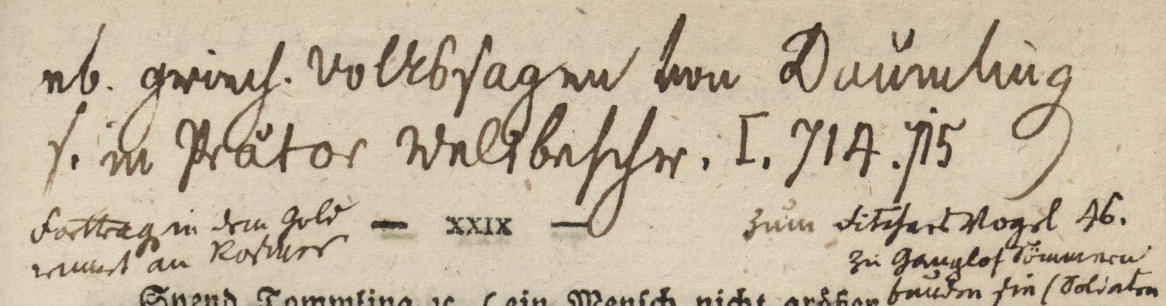 nb. griech. Volkssagen von Daümling
s. in Prätor Weltbeschr. I. 714. 715
Forttrag in dem Gold
erinnert an
— XXIX —
zum Fitchers Vogel 46.
zu Ganglof Sömmern
(Soldaten
Svend Tommling ꝛc. (ein Mensch nicht größer